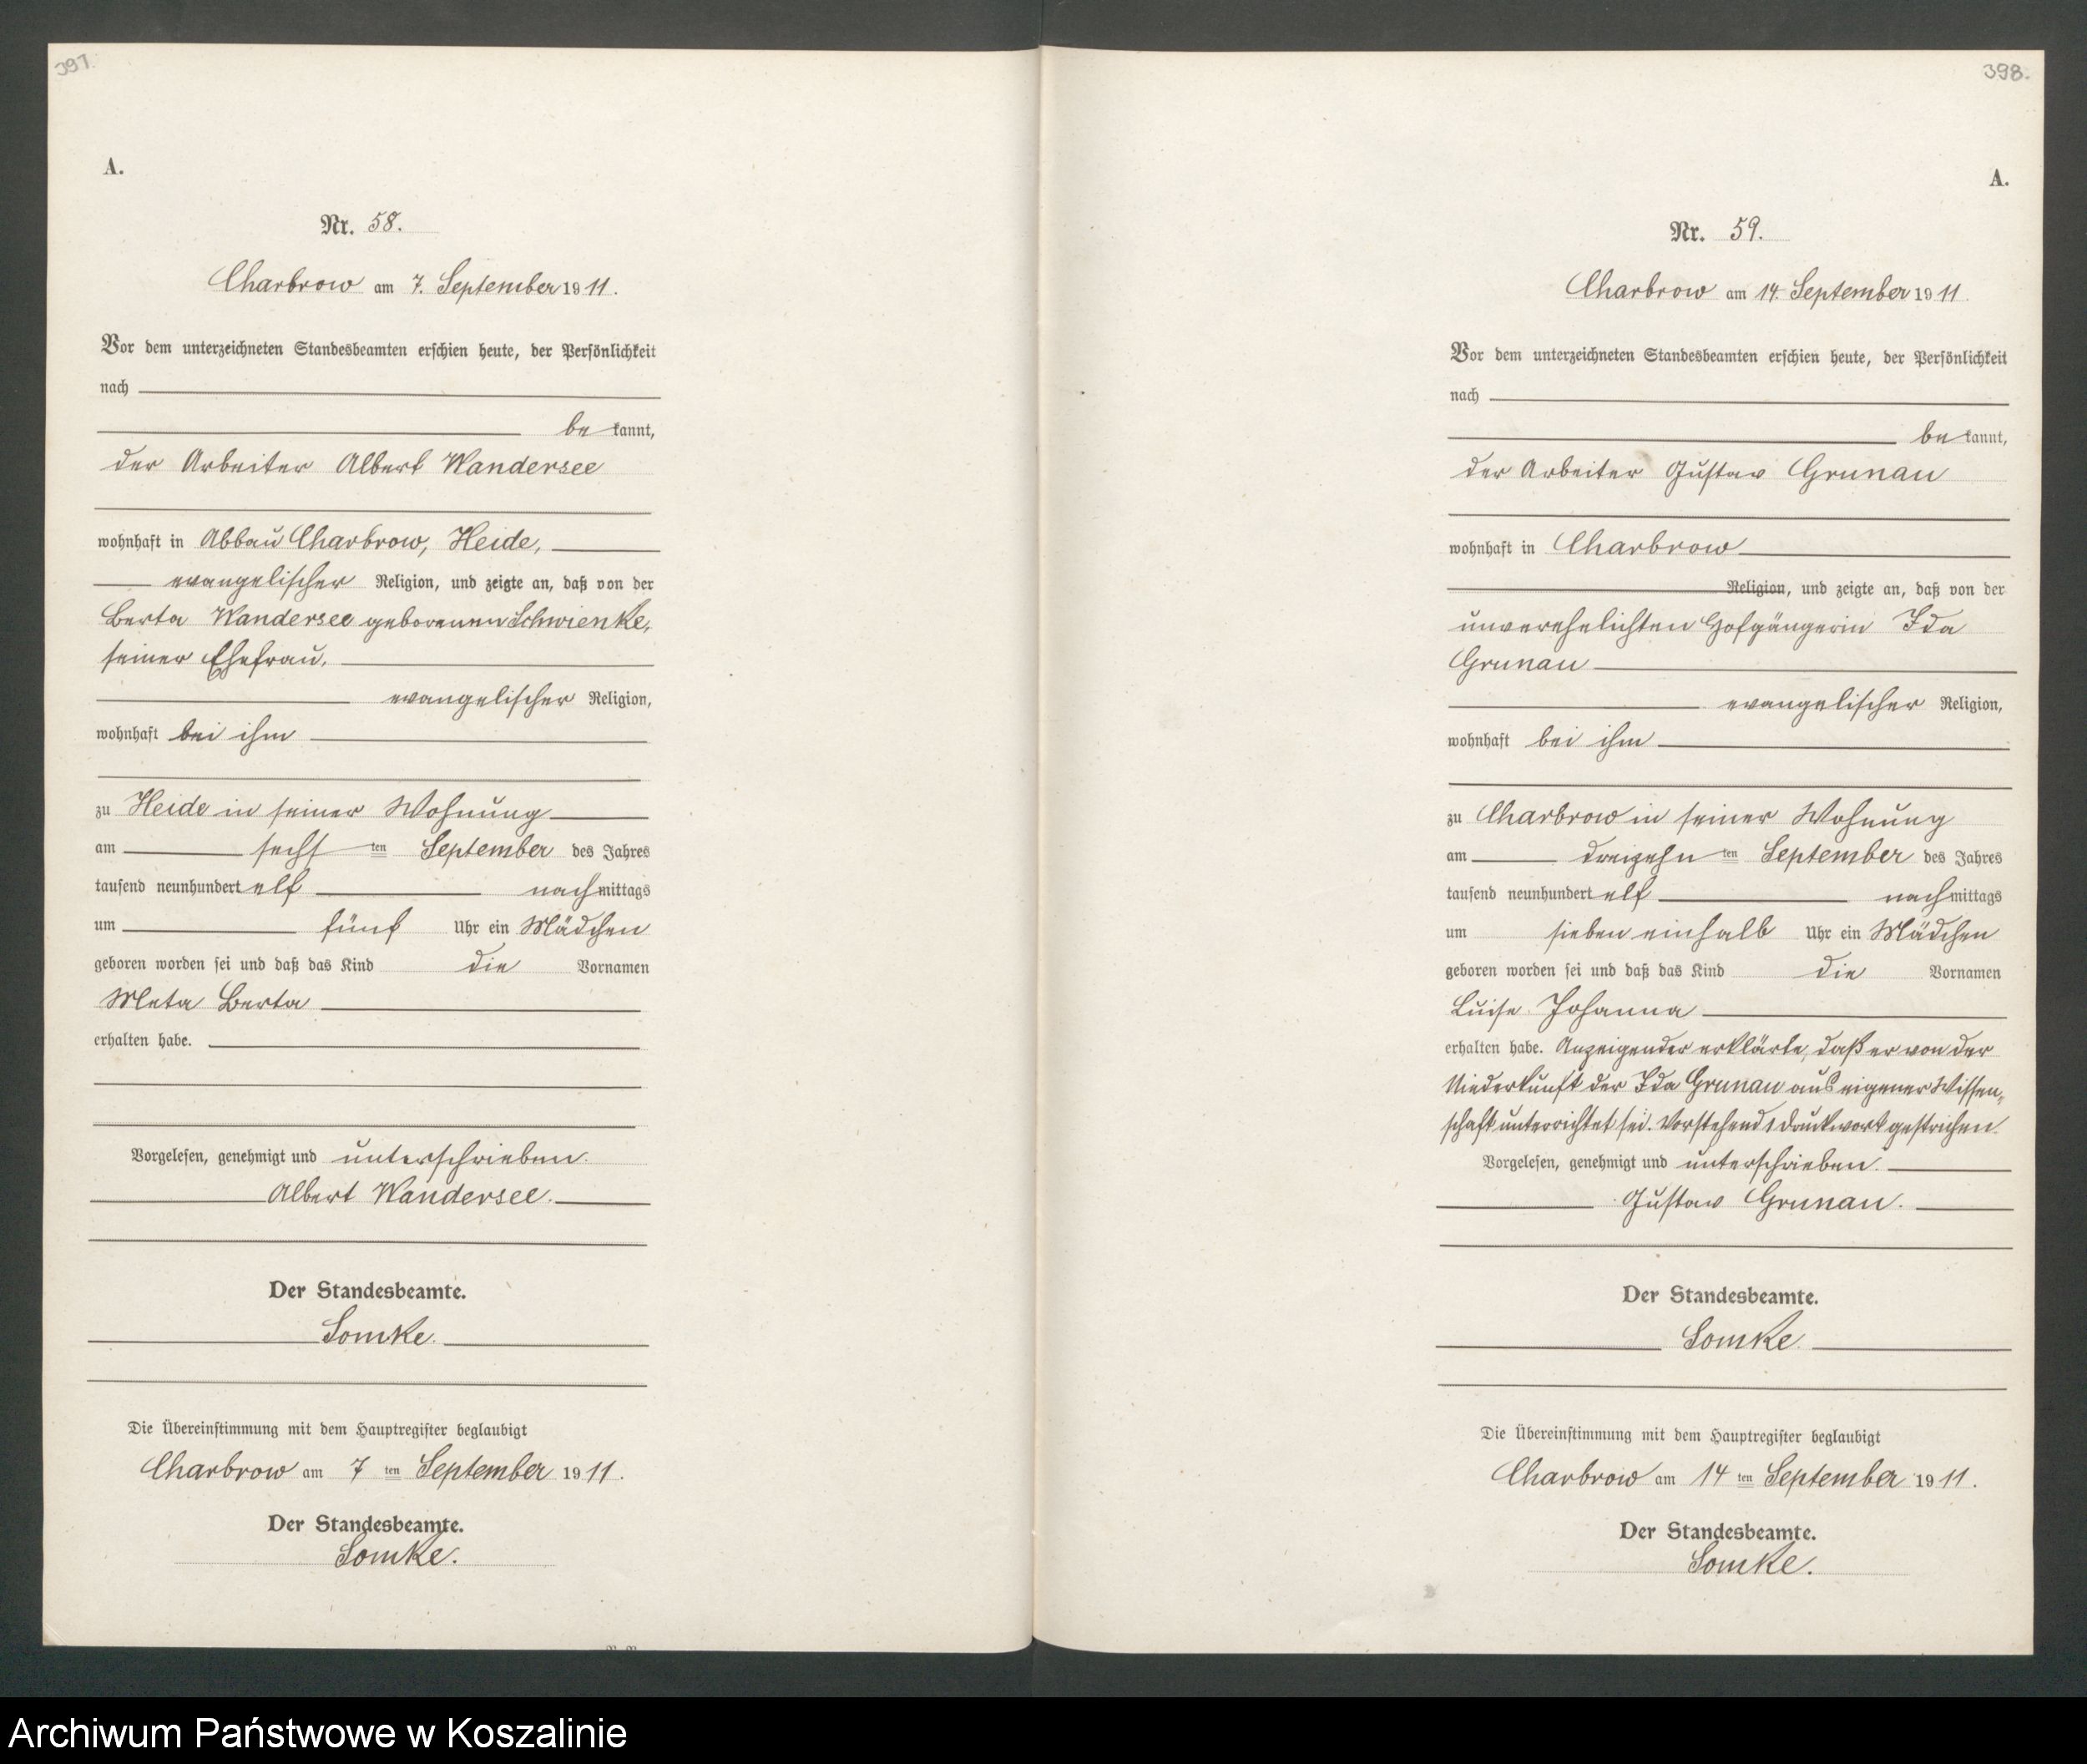 397.
A.
Nr. 58.
Charbrow am 7. September 1911.
Vor dem unterzeichneten Standesbeamten erschien heute, der Persönlichkeit
nach
be kannt,
der Arbeiter Albert Wandersee
wohnhaft in Abbau Charbrow, Heide,
evangelischer Religion, und zeigte an, daß von der
Berta Wandersee geborenen Schwienke,
seiner Ehefrau,
evangelischer Religion,
wohnhaft bei ihm
zu Heide in seiner Wohnung
am sechsten September des Jahres
tausend neunhundert elf nachmittags
um fünf Uhr ein Mädchen
geboren worden sei und daß das Kind die Vornamen
Meta Berta
erhalten habe.
Vorgelesen, genehmigt und unterschrieben.
Albert Wandersee.
Der Standesbeamte.
Somke.
Die Übereinstimmung mit dem Hauptregister beglaubigt
Charbrow am 7 ten September 1911.
Der Standesbeamte.
Somke.
398.
A.
Nr. 59.
Charbrow am 14. September 1911.
Vor dem unterzeichneten Standesbeamten erschien heute, der Persönlichkeit
nach
be kannt,
der Arbeiter Gustav Grunau
wohnhaft in Charbrow
Religion, und zeigte an, daß von der
unverehelichten Hofgängerin Ida
Grunau
evangelischer Religion,
wohnhaft bei ihm
zu Charbrow in seiner Wohnung
am dreizehnten September des Jahres
tausend neunhundert elf nachmittags
um sieben einhalb Uhr ein Mädchen
geboren worden sei und daß das Kind die Vornamen
Luise Johanna
erhalten habe. Anzeigender erklärte, daß er von der
Niederkunft der Ida Grunau aus eigener Wissen-
schaft unterrichtet sei. Vorstehend 1 Druckwort gestrichen.
Vorgelesen, genehmigt und unterschrieben.
Gustav Grunau.
Der Standesbeamte.
Somke.
Die Übereinstimmung mit dem Hauptregister beglaubigt
Charbrow am 14 ten September 1911.
Der Standesbeamte.
Somke.
Archiwum Państwowe w Koszalinie